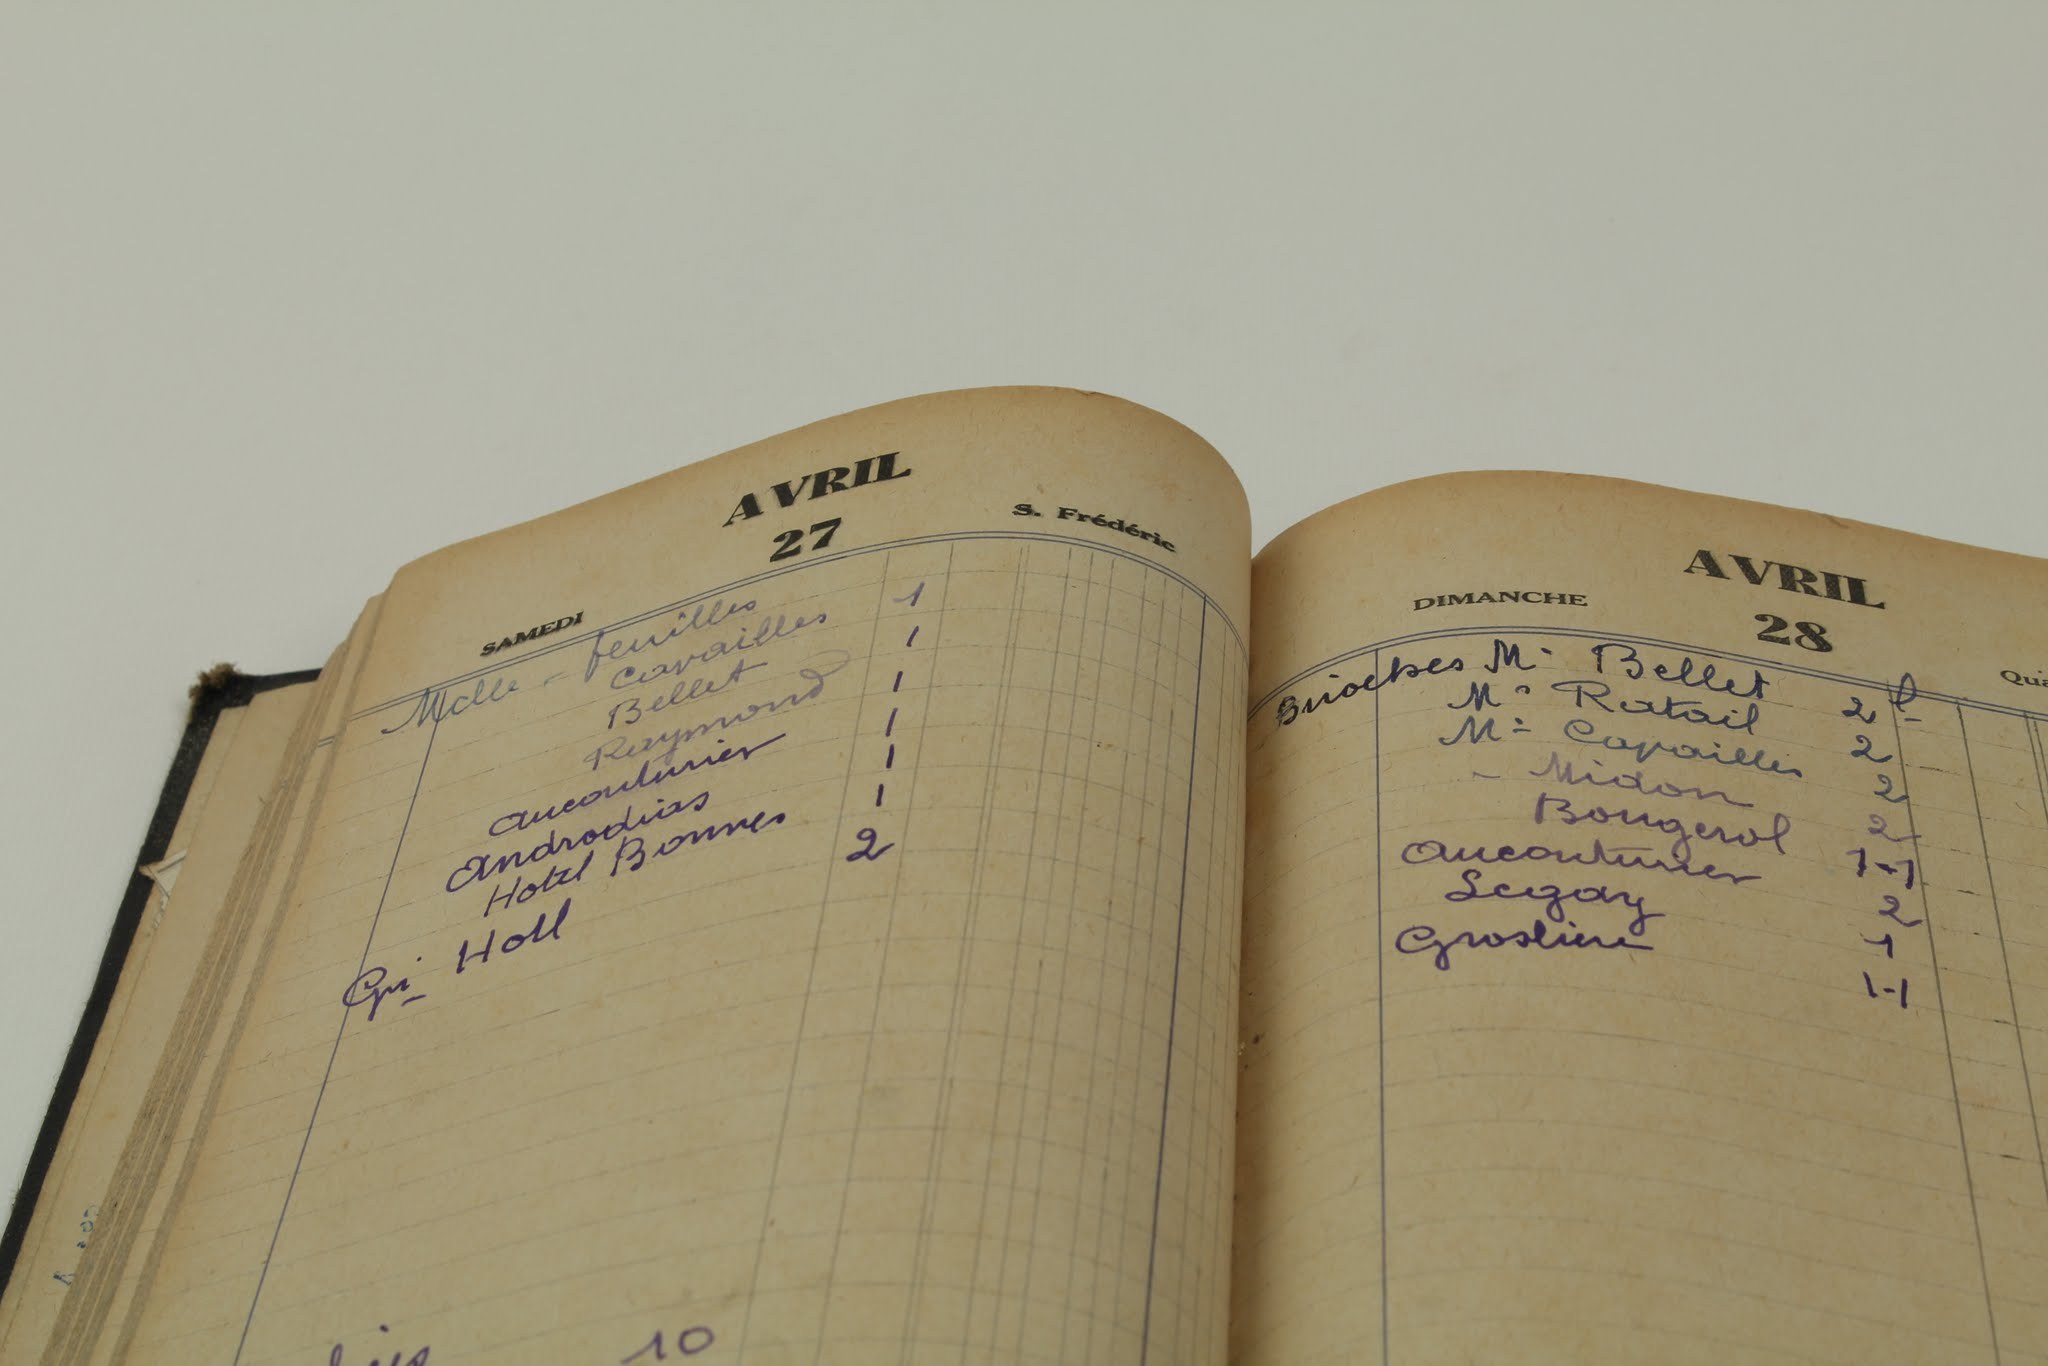 AVRIL
27
SAMEDI
S. Frédéric
Mille-feuilles
Cavailles 1
Bellet 1
Raymond 1
Aucouturier 1
Androdias 1
Hotel Bonnes 1
2
AVRIL
28
DIMANCHE
Qua
Brioches Mᵉ Bellet 2 l
Mᵉ Ratail 2
Mᵉ Cavailles 2
- Midon 2
Bougerol 1-1
Aucouturier 2
Legay 1
Groslière 1-1
10